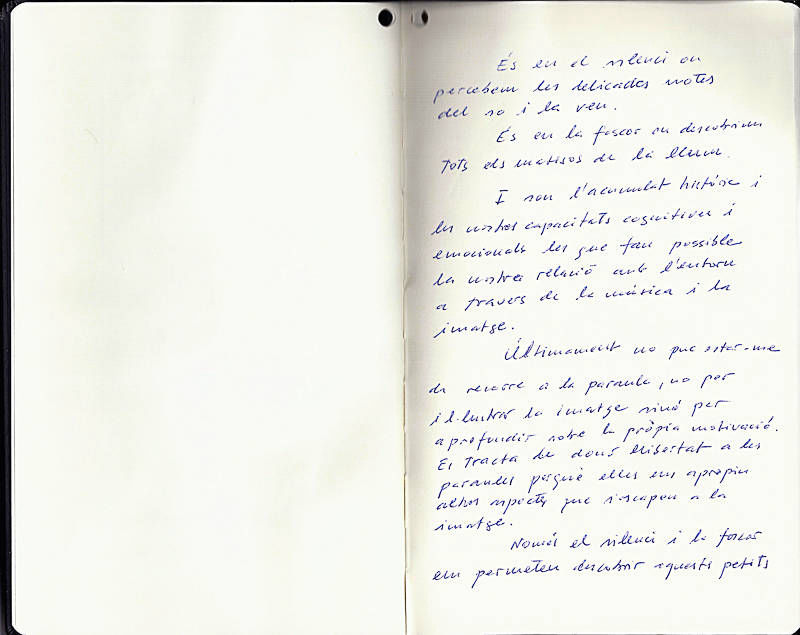 És en el silenci on
percebem les delicades notes
del so i la veu.
És en la foscor on descobrim
tots els matisos de la llum.
I són l'acumulat històric i
les nostres capacitats cognitives i
emocionals les que fan possible
la nostra relació amb l'entorn
a través de la música i la
imatge.
Últimament no puc estar-me
de recórrer a la paraula, no per
il·lustrar la imatge sinó per
aprofundir sobre la pròpia motivació.
Es tracta de donar llibertat a les
paraules perquè elles ens apropin
altres aspectes que s'escapen a la
imatge.
Només el silenci i la foscor
em permeten descobrir aquests petits